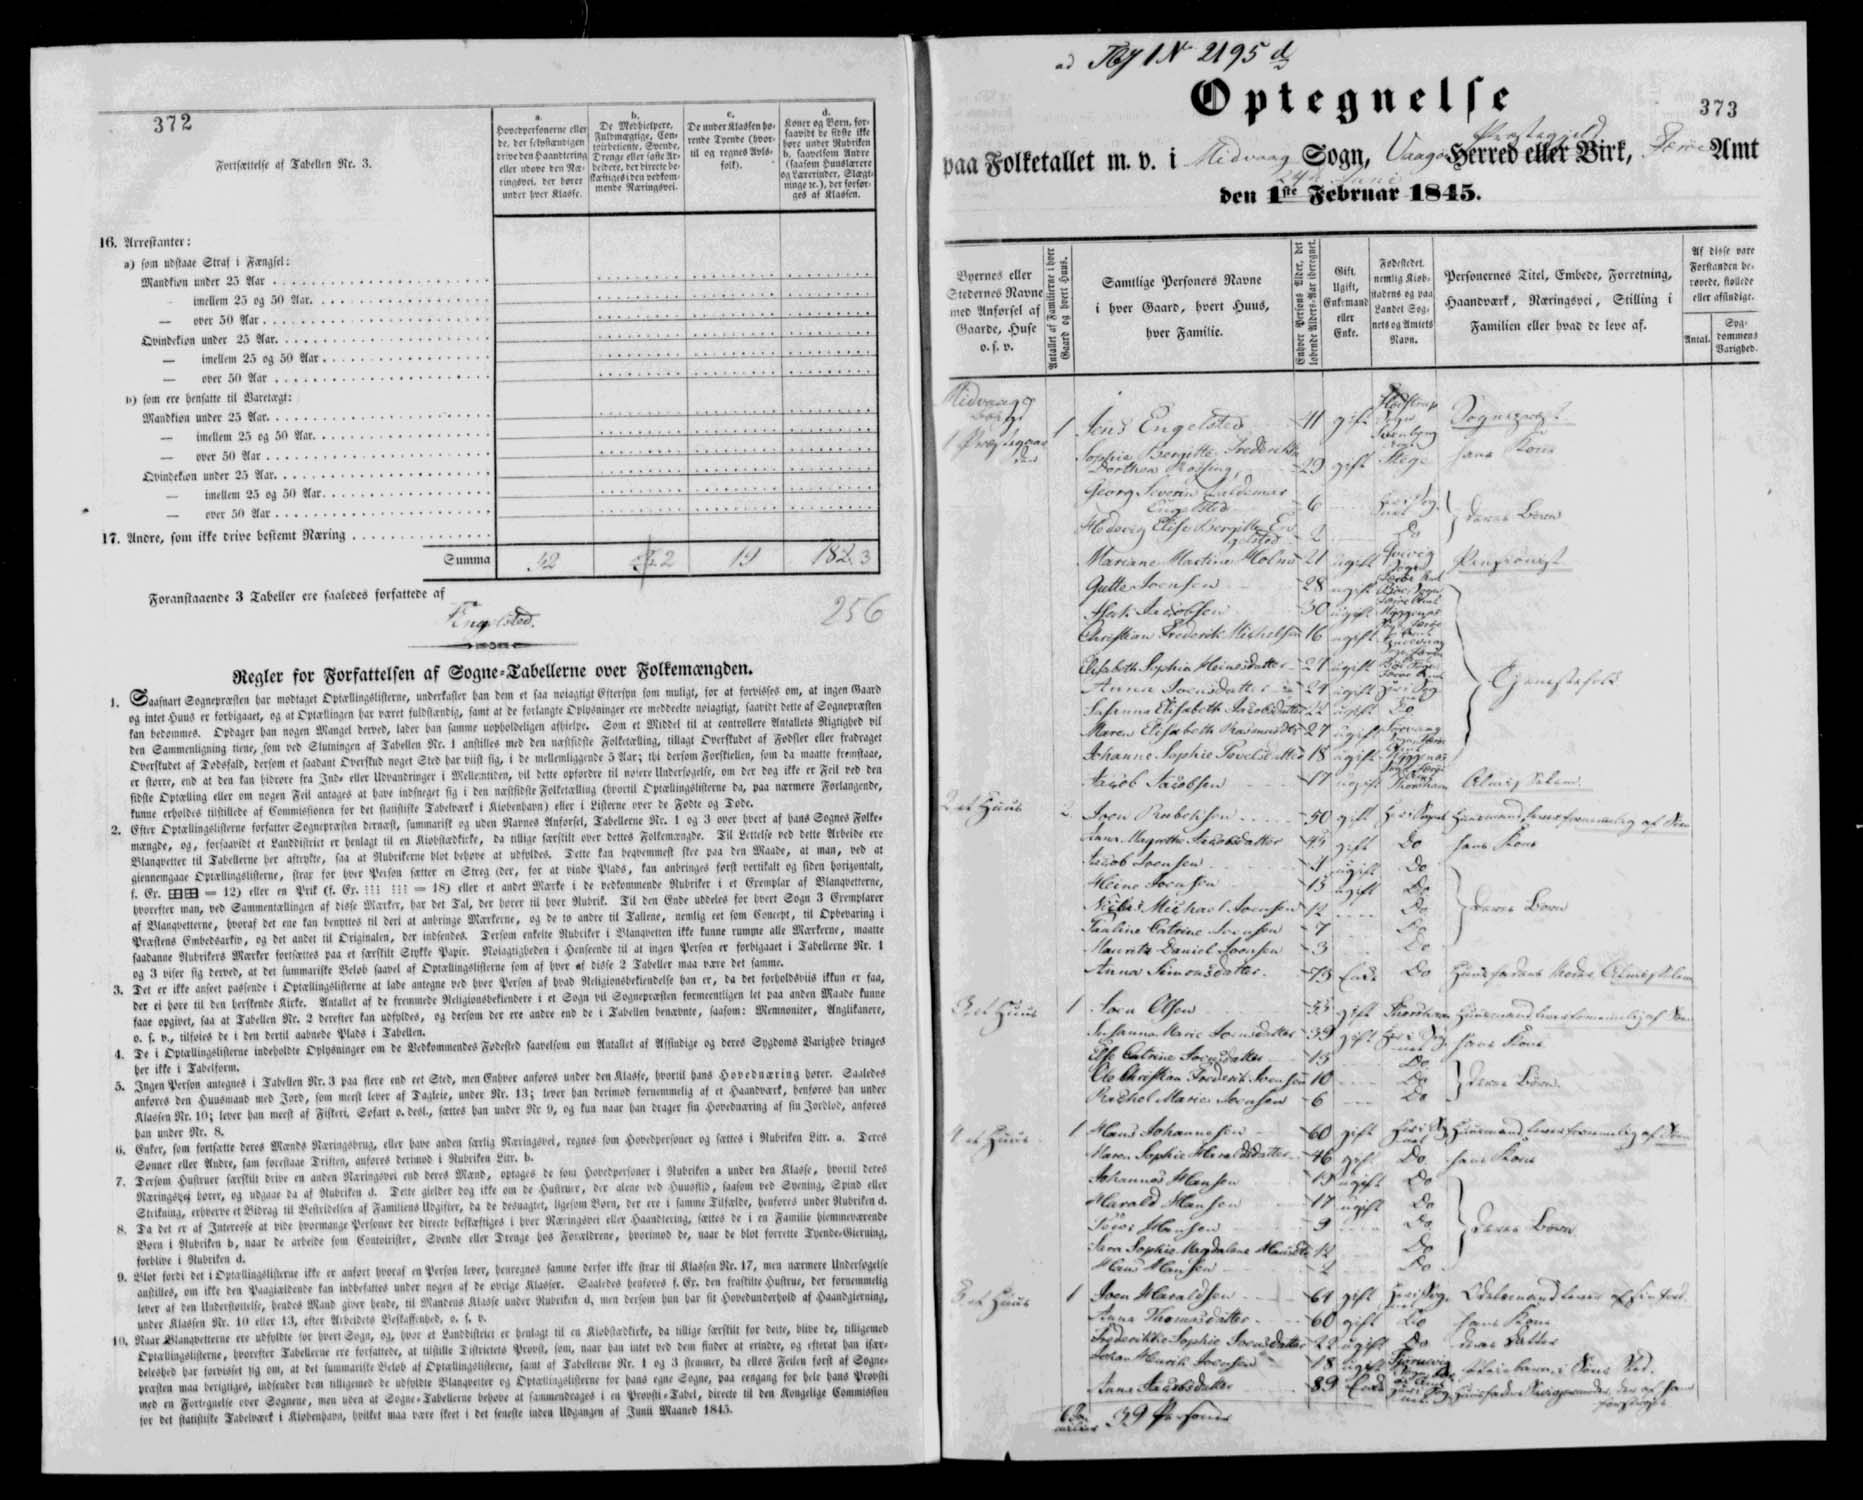 372
Fortsættelse af Tabellen Nr. 3.
a.
Hovedpersonerne eller
de, der selvstændigen
drive den Haandtering
eller udøve den Næ-
ringsvei, der hører
under hver Klasse.
b.
De Medhielpere,
Fuldmægtige, Con-
toirbetiente, Svende,
Drenge eller faste Ar-
beidere, der directe be-
skæftiges i den vedkom-
mende Næringsvei.
c.
De under Klassen hø-
rende Tyende (hvor-
til og regnes Avls-
folk).
d.
Koner og Børn, for-
saavidt de sidste ikke
høre under Rubriken
b, saavelsom Andre
(saasom Huuslærere
og Lærerinder, Slægt-
ninge ic.), der forsør-
ges af Klassen.
16. Arrestanter:
a) som udstaae Straf i Fængsel:
Mandkion under 25 Aar
— imellem 25 og 50 Aar
— over 50 Aar
Qvindekion under 25 Aar
— imellem 25 og 50 Aar
— over 50 Aar
b) som ere hensatte til Varetægt:
Mandkion under 25 Aar
— imellem 25 og 50 Aar
— over 50 Aar
Qvindekion under 25 Aar
— imellem 25 og 50 Aar
— over 50 Aar
17. Andre, som ikke drive bestemt Næring
Summa 52 2 19 182 3
Foranstaaende 3 Tabeller ere saaledes forfattede af
Engelsted.
256
Regler for Forfattelsen af Sogne-Tabellerne over Folkemængden.
1. Saasnart Sognepræsten har modtaget Optællingslisterne, underkaster han dem et saa nøiagtigt Eftersyn som muligt, for at forvisses om, at ingen Gaard
og intet Huus er forbigaaet, og at Optællingen har været fuldstændig, samt at de forlangte Oplysninger ere meddeelte nøiagtigt, saavidt dette af Sognepræsten
kan bedømmes. Opdager han nogen Mangel derved, lader han samme uopholdeligen afhielpe. Som et Middel til at controllere Antallets Rigtighed vil
den Sammenligning tiene, som ved Slutningen af Tabellen Nr. 1 anstilles med den næstsidste Folketælling, tillagt Overskudet af Fødsler eller fradraget
Overskudet af Dødsfald, dersom et saadant Overskud noget Sted har viist sig, i de mellemliggende 5 Aar; thi dersom Forskiellen, som da maatte fremstaae,
er større, end at den kan hidrøre fra Ind- eller Udvandringer i Mellemtiden, vil dette opfordre til nøiere Undersøgelse, om der dog ikke er Feil ved den
sidste Optælling eller om nogen Feil antages at have indsneget sig i den næstsidste Folketælling (hvortil Optællingslisterne da, paa nærmere Forlangende,
kunne erholdes tilstillede af Commissionen for det statistiske Tabelværk i Kiøbenhavn) eller i Listerne over de Fødte og Døde.
2. Efter Optællingslisterne forfatter Sognepræsten dernæst, summarisk og uden Navnes Anførsel, Tabellerne Nr. 1 og 3 over hvert af hans Sognes Folke-
mængde, og, forsaavidt et Landdistrict er henlagt til en Kiøbstædkirke, da tillige særskilt over dettes Folkemængde. Til Lettelse ved dette Arbeide ere
Blanqvetter til Tabellerne her aftrykte, saa at Rubrikerne blot behøve at udfyldes. Dette kan beqvemmest skee paa den Maade, at man, ved at
giennemgaae Optællingslisterne, strax for hver Person sætter en Streg (der, for at vinde Plads, kan anbringes først vertikalt og siden horizontalt,
f. Ex. ⊞⊞ = 12) eller en Prik (f. Ex. ⋮⋮⋮ ⋮⋮⋮ = 18) eller et andet Mærke i de vedkommende Rubriker i et Exemplar af Blanqvetterne,
hvorefter man, ved Sammentællingen af disse Mærker, har det Tal, der hører til hver Rubrik. Til den Ende uddeles for hvert Sogn 3 Exemplarer
af Blanqvetterne, hvoraf det ene kan benyttes til deri at anbringe Mærkerne, og de to andre til Tallene, nemlig eet som Concept, til Opbevaring i
Præstens Embedsarkiv, og det andet til Originalen, der indsendes. Dersom enkelte Rubriker i Blanqvetten ikke kunne rumme alle Mærkerne, maatte
saadanne Rubrikers Mærker fortsættes paa et særskilt Stykke Papir. Nøiagtigheden i Henseende til at ingen Person er forbigaaet i Tabellerne Nr. 1
og 3 viser sig derved, at det summariske Beløb saavel af Optællingslisterne som af hver af disse 2 Tabeller maa være det samme.
3. Det er ikke anseet passende i Optællingslisterne at lade antegne ved hver Person af hvad Religionsbekiendelse han er, da det forholdsviis ikkun er faa,
der ei høre til den herskende Kirke. Antallet af de fremmede Religionsbekiendere i et Sogn vil Sognepræsten formeentligen let paa anden Maade kunne
faae opgivet, saa at Tabellen Nr. 2 derefter kan udfyldes, og dersom der ere andre end de i Tabellen benævnte, saasom: Memnoniter, Anglikanere,
o. s. v., tilføies de i den dertil aabnede Plads i Tabellen.
4. De i Optællingslisterne indeholdte Oplysninger om de Vedkommendes Fødested saavelsom om Antallet af Afsindige og deres Sygdoms Varighed bringes
her ikke i Tabelform.
5. Ingen Person antegnes i Tabellen Nr. 3 paa flere end eet Sted, men Enhver anføres under den Klasse, hvortil hans Hovednæring hører. Saaledes
anføres den Huusmand med Jord, som meest lever af Dagleie, under Nr. 13; lever han derimod fornemmelig af et Haandværk, henføres han under
Klassen Nr. 10; lever han meest af Fiskeri, Søfart o. desl., sættes han under Nr 9, og kun naar han drager sin Hovednæring af sin Jordlod, anføres
han under Nr. 8.
6. Enker, som fortsætte deres Mænds Næringsbrug, eller have anden særlig Næringsvei, regnes som Hovedpersoner og sættes i Rubriken Litr. a. Deres
Sønner eller Andre, som forestaae Driften, anføres derimod i Rubriken Litr. b.
7. Dersom Hustruer særskilt drive en anden Næringsvei end deres Mænd, optages de som Hovedpersoner i Rubriken a under den Klasse, hvortil deres
Næringsvei hører, og udgaae da af Rubriken d. Dette gielder dog ikke om de Hustruer, der alene ved Huusflid, saasom ved Syening, Spind eller
Strikning, erhverve et Bidrag til Bestridelsen af Familiens Udgifter, da de desuagtet, ligesom Børn, der ere i samme Tilfælde, henføres under Rubriken d.
8. Da det er af Interesse at vide hvormange Personer der directe beskæftiges i hver Næringsvei eller Haandtering, sættes de i en Familie hiemmeværende
Børn i Rubriken b, naar de arbeide som Contoirister, Svende eller Drenge hos Forældrene, hvorimod de, naar de blot forrette Tyende-Gierning,
forblive i Rubriken d.
9. Blot fordi det i Optællingslisterne ikke er anført hvoraf en Person lever, henregnes samme derfor ikke strax til Klassen Nr. 17, men nærmere Undersøgelse
anstilles, om ikke den Paagiældende kan indbefattes under nogen af de øvrige Klasser. Saaledes henføres f. Ex. den fraskilte Hustrue, der fornemmelig
lever af den Understøttelse, hendes Mand giver hende, til Mandens Klasse under Rubriken d, men dersom hun har sit Hovedunderhold af Haandgierning,
under Klassen Nr. 10 eller 13, efter Arbeidets Beskaffenhed, o. s. v.
10. Naar Blanqvetterne ere udfyldte for hvert Sogn, og, hvor et Landdistrict er henlagt til en Kiøbstædkirke, da tillige særskilt for dette, blive de, tilligemed
Optællingslisterne, hvorefter Tabellerne ere forfattede, at tilstille Districtets Provst, som, naar han intet ved dem finder at erindre, og efterat han især-
deleshed har forvisset sig om, at det summariske Beløb af Optællingslisterne, samt af Tabellerne Nr. 1 og 3 stemmer, da ellers Feilen først af Sogne-
præsten maa berigtiges, indsender dem tilligemed de udfyldte Blanqvetter og Optællingslisterne for hans egne Sogne, paa eengang for hele hans Provsti
med en Fortegnelse over Sognene, men uden at Sogne-Tabellerne behøve at sammendrages i en Provsti-Tabel, directe til den Kongelige Commission
for det statistiske Tabelværk i Kiøbenhavn, hvilket maa være skeet i det seneste inden Udgangen af Junii Maaned 1845.
ad 1 N 2195
Optegnelse
373
paa Folketallet m. v. i Midvaag Sogn, Vaagø Præstegield Herred eller Birk, Færøe Amt
den 1ste Februar 1845.
Byernes eller
Stedernes Navne
med Anførsel af
Gaarde, Huse
o. s. v.
Antallet af Familierne i hver
Gaard og hvert Huus.
Samtlige Personers Navne
i hver Gaard, hvert Huus,
hver Familie.
Enhver Persons Alder, det
løbende Alders-Aar iberegnet.
Gift,
Ugift,
Enkemand
eller
Enke.
Fødestedet,
nemlig Kiøb-
stadens og paa
Landet Sog-
nets og Amtets
Navn.
Personernes Titel, Embede, Forretning,
Haandværk, Næringsvei, Stilling i
Familien eller hvad de leve af.
Af disse vare
Forstanden be-
røvede, fiollede
eller afsindige.
Antal.
Syg-
dommens
Varighed.
Midvaag
Bøigd
1 Præstegaar
den
1 Jens Engelsted 41 gift Sognepræst
Sophie Bergitte Frederikke
Dorthea Rossing 29 gift Stege hans Kone
Georg Severin Valdemar
Engelsted 6 deres Børn
Hedevig Elise Bergitte En
gelsted 2 Do
Mariane Martine Holm 21 ugift Pensionist
Gutte Joensen 28 ugift
Jacobsen 30 ugift Myggenæs
Christian Frederik Michelsen 16 ugift
Elisabeth Sophia Heinesdatter 21 ugift Tjenestefolk
Anna Joensdatter 24 ugift
Susanna Elisabeth Jacobsdatter 22 ugift Do
Maren Elisabeth Rasmusdtr 27 ugift
Johanne Sophie 18 ugift Myggenæs
Jacob Jacobsen 17 ugift Thorshavn Almisselem
2 et Huus 2 Joen 50 gift Huusmand lever fornemmelig af
Anna Magrethe Jacobsdatter 45 gift Do hans Kone
Jacob Joensen ugift Do
Heine Joensen 15 ugift Do
Niclas Michael Joensen 12 Do deres Børn
Pauline Catrine Joensen 7 Do
Mauritz Daniel Joensen 3 Do
Anna Simonsdatter 73 Enke Do Huusfaderens Moder Almisselem
3 et Huus 1 Joen Olsen 55 gift Thorshavn Huusmand lever fornemmelig af
Susanna Marie Joensdatter 39 gift hans Kone
Else Catrine Joensdatter 15 Do
Ole Christian Frederik Joensen 10 Do deres Børn
Rachel Marie Joensen 6 Do
4 et Huus 1 Hans Johannesen 60 gift Huusmand lever fornemmelig af
Maren Sophie Haraldsdatter 46 gift Do hans Kone
Johannes Hansen 19 ugift Do
Harald Hansen 17 ugift Do
Hansen 9 Do deres Børn
Sara Sophie Magdalene Hansdtr 12 Do
Hans Hansen Do
5 et Huus 1 Joen Haraldsen 61 gift Odelsmand lever af sin Jord
Anna Thomasdatter 60 gift Do hans Kone
Frederikke Sophie Joensdatter 22 ugift Do deres Datter
Johan Henrik Joensen 18 ugift
Anna Jacobsdatter 89 Enke
39 Personer